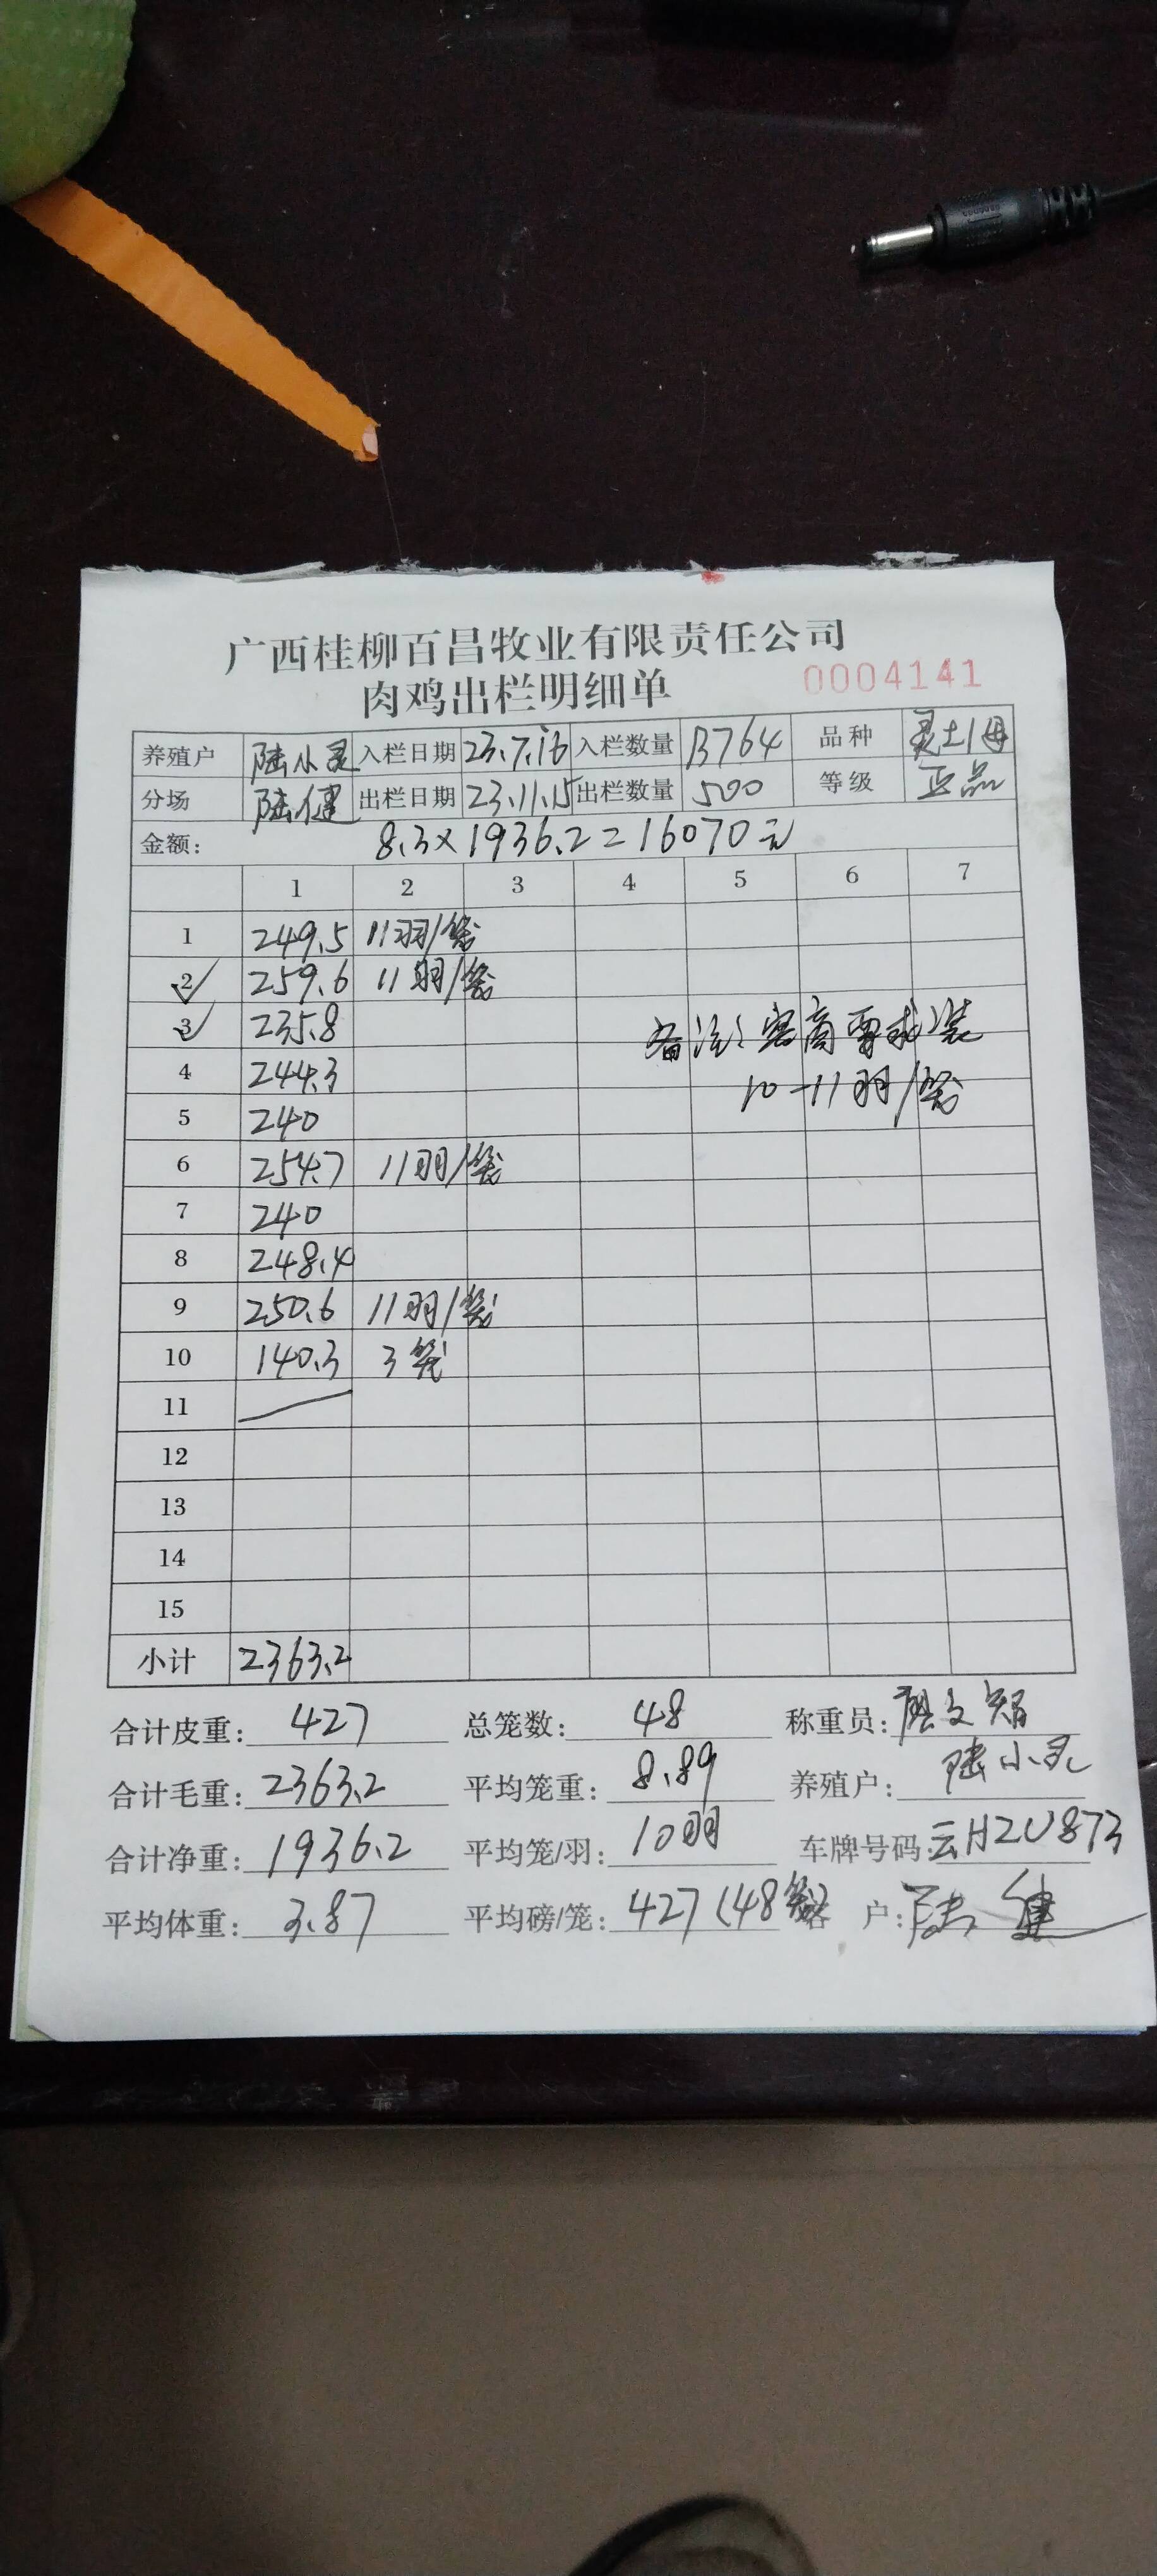 广西桂柳百昌牧业有限责任公司
肉鸡出栏明细单 0004141
养殖户 陆小灵 入栏日期 23.7.16 入栏数量 13764 品种 灵土1母
分场 陆健 出栏日期 23.11.15 出栏数量 500 等级 正品
金额: 8.3×1936.2=16070元
1 2 3 4 5 6 7
1 249.5 11羽/笼
2 259.6 11羽/笼
3 235.8
备注:客商要求装
4 244.3
10-11羽/笼
5 240
6 254.7 11羽/笼
7 240
8 248.4
9 250.6 11羽/笼
10 140.3 3笼
11
12
13
14
15
小计 2363.2
合计皮重: 427 总笼数: 48 称重员:
合计毛重: 2363.2 平均笼重: 8.89 养殖户: 陆小灵
合计净重: 1936.2 平均笼/羽: 10羽 车牌号码: 云H2U873
平均体重: 3.87 平均磅/笼: 427(48笼) 客户: 陆健